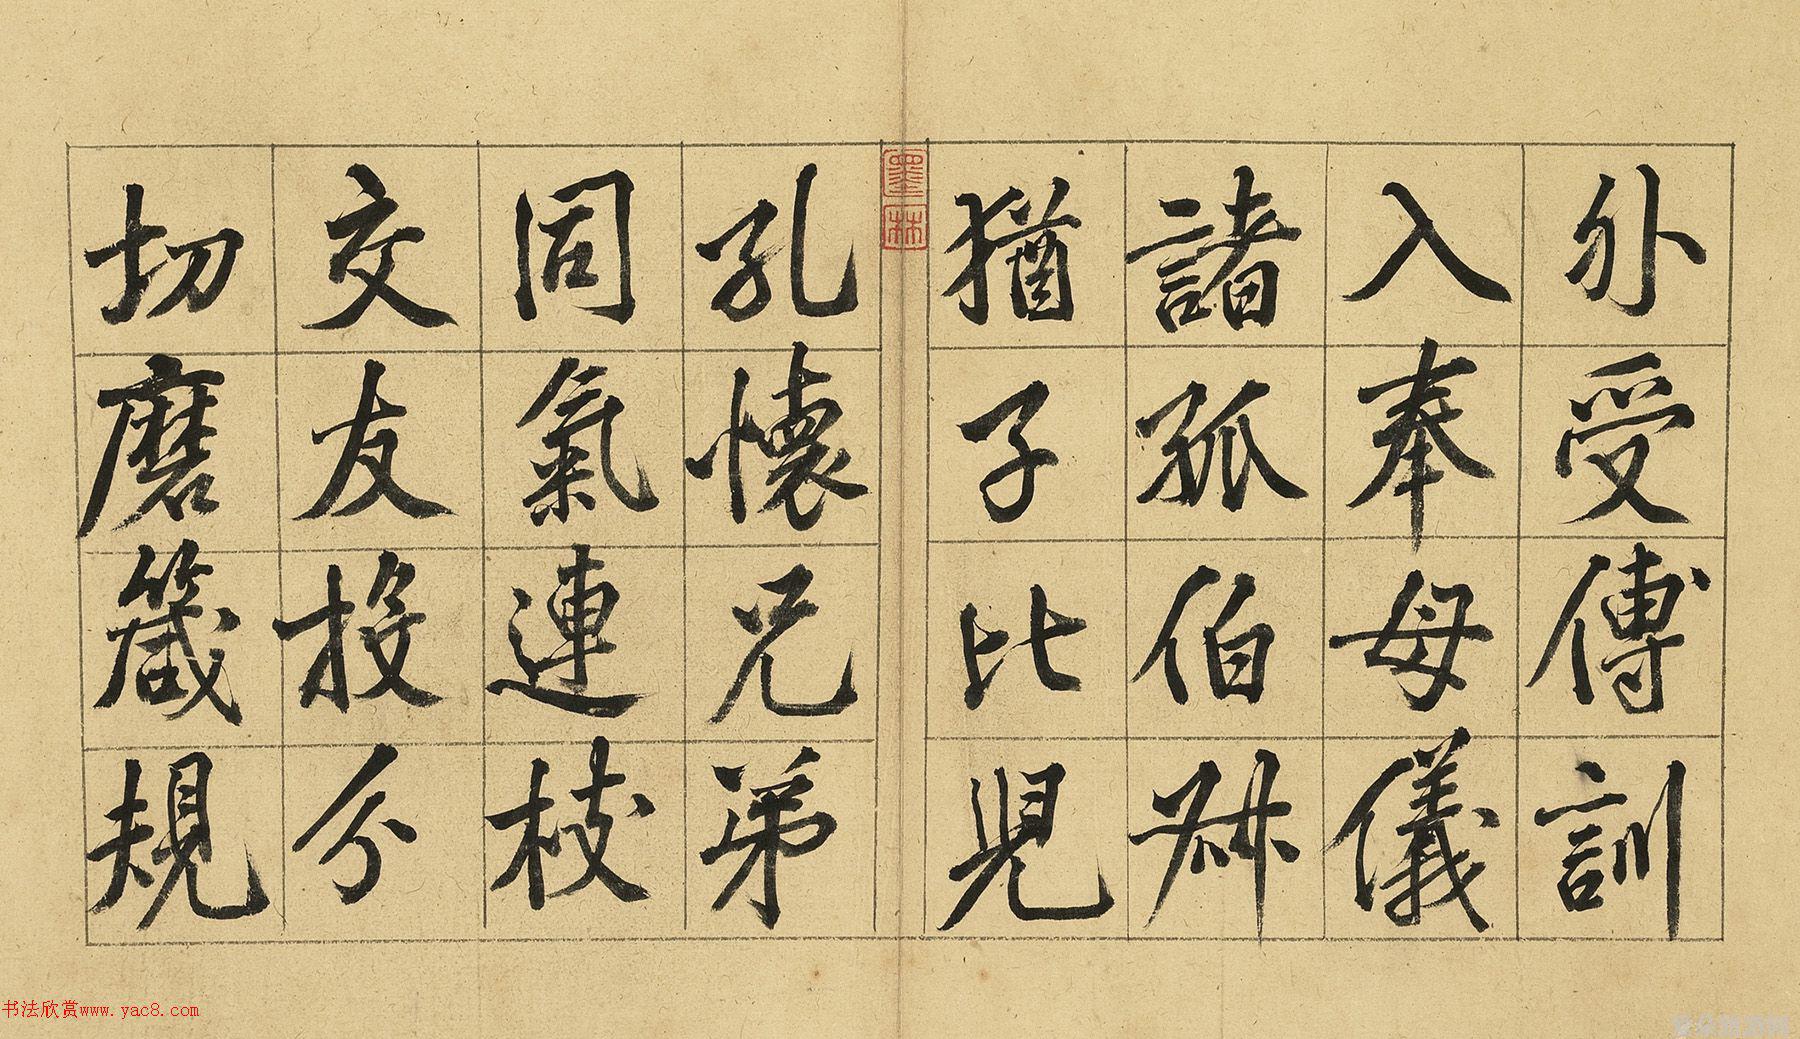 外受傅訓
入奉母儀
諸孤伯叔
猶子比兒
墨林
孔懷兄弟
同氣連枝
交友投分
切磨箴規
书法欣赏www.yac8.com